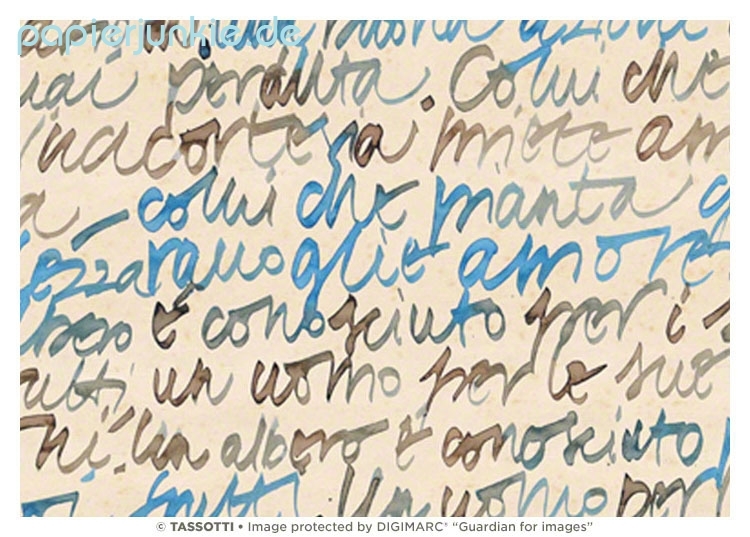 papierjunkie.de
una buona azione
mai perduta. Colui che
una cortesia miete am
a – colui che pianta g
ezza raccoglie amore
bero è conosciuto per i s
utti un uomo per le sue
ni. Un albero è conosciuto
frutti. Un uomo per l
© TASSOTTI • Image protected by DIGIMARC® “Guardian for images”